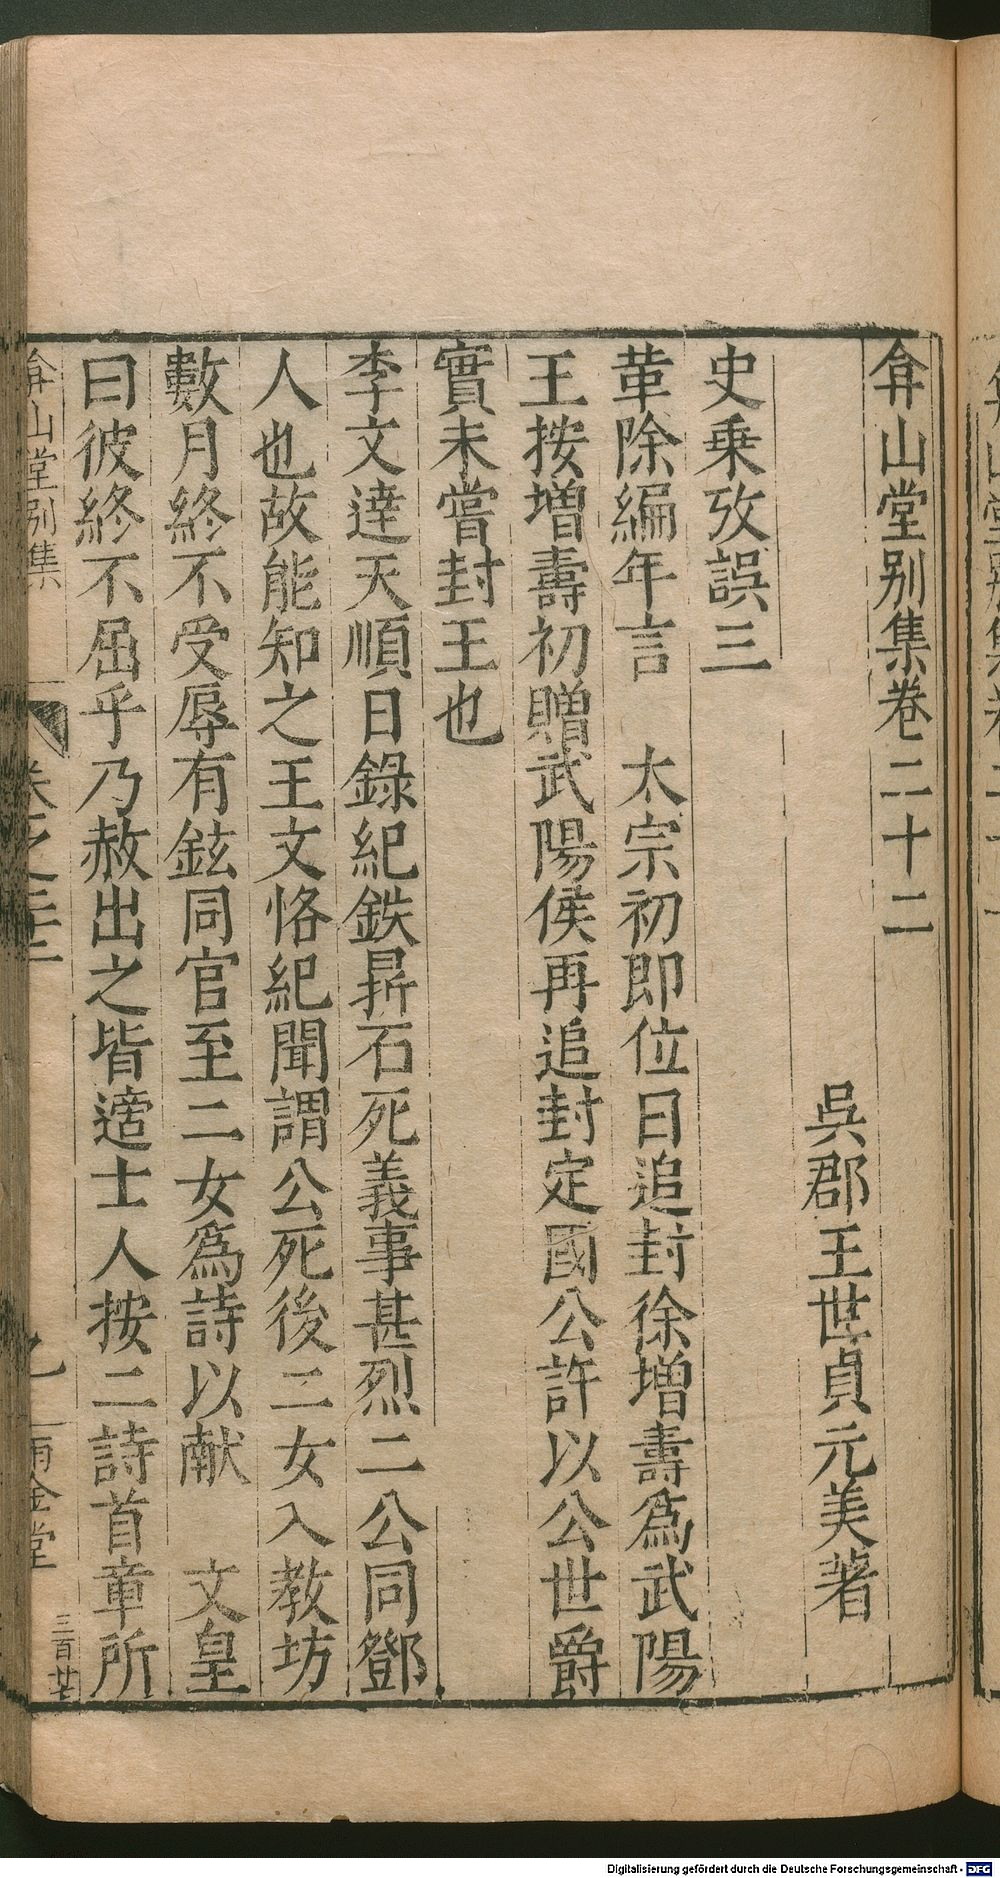 弇山堂别集卷二十二
吳郡王世貞元美著
史乗攷誤三
革除編年言　太宗初即位日追封徐增壽爲武陽
王按增壽初贈武陽侯再追封定國公許以公世爵
實未嘗封王也
李文達天順日錄紀鉄鼎石死義事甚烈二公同鄧
人也故能知之王文恪紀聞謂公死後二女入教坊
數月終不受辱有鉉同官至二女爲詩以献　文皇
曰彼終不屈乎乃赦出之皆適士人按二詩首章所
弇山堂别集
卷之二十二
一
雨金堂
三百廿
Digitalisierung gefördert durch die Deutsche Forschungsgemeinschaft - DFG